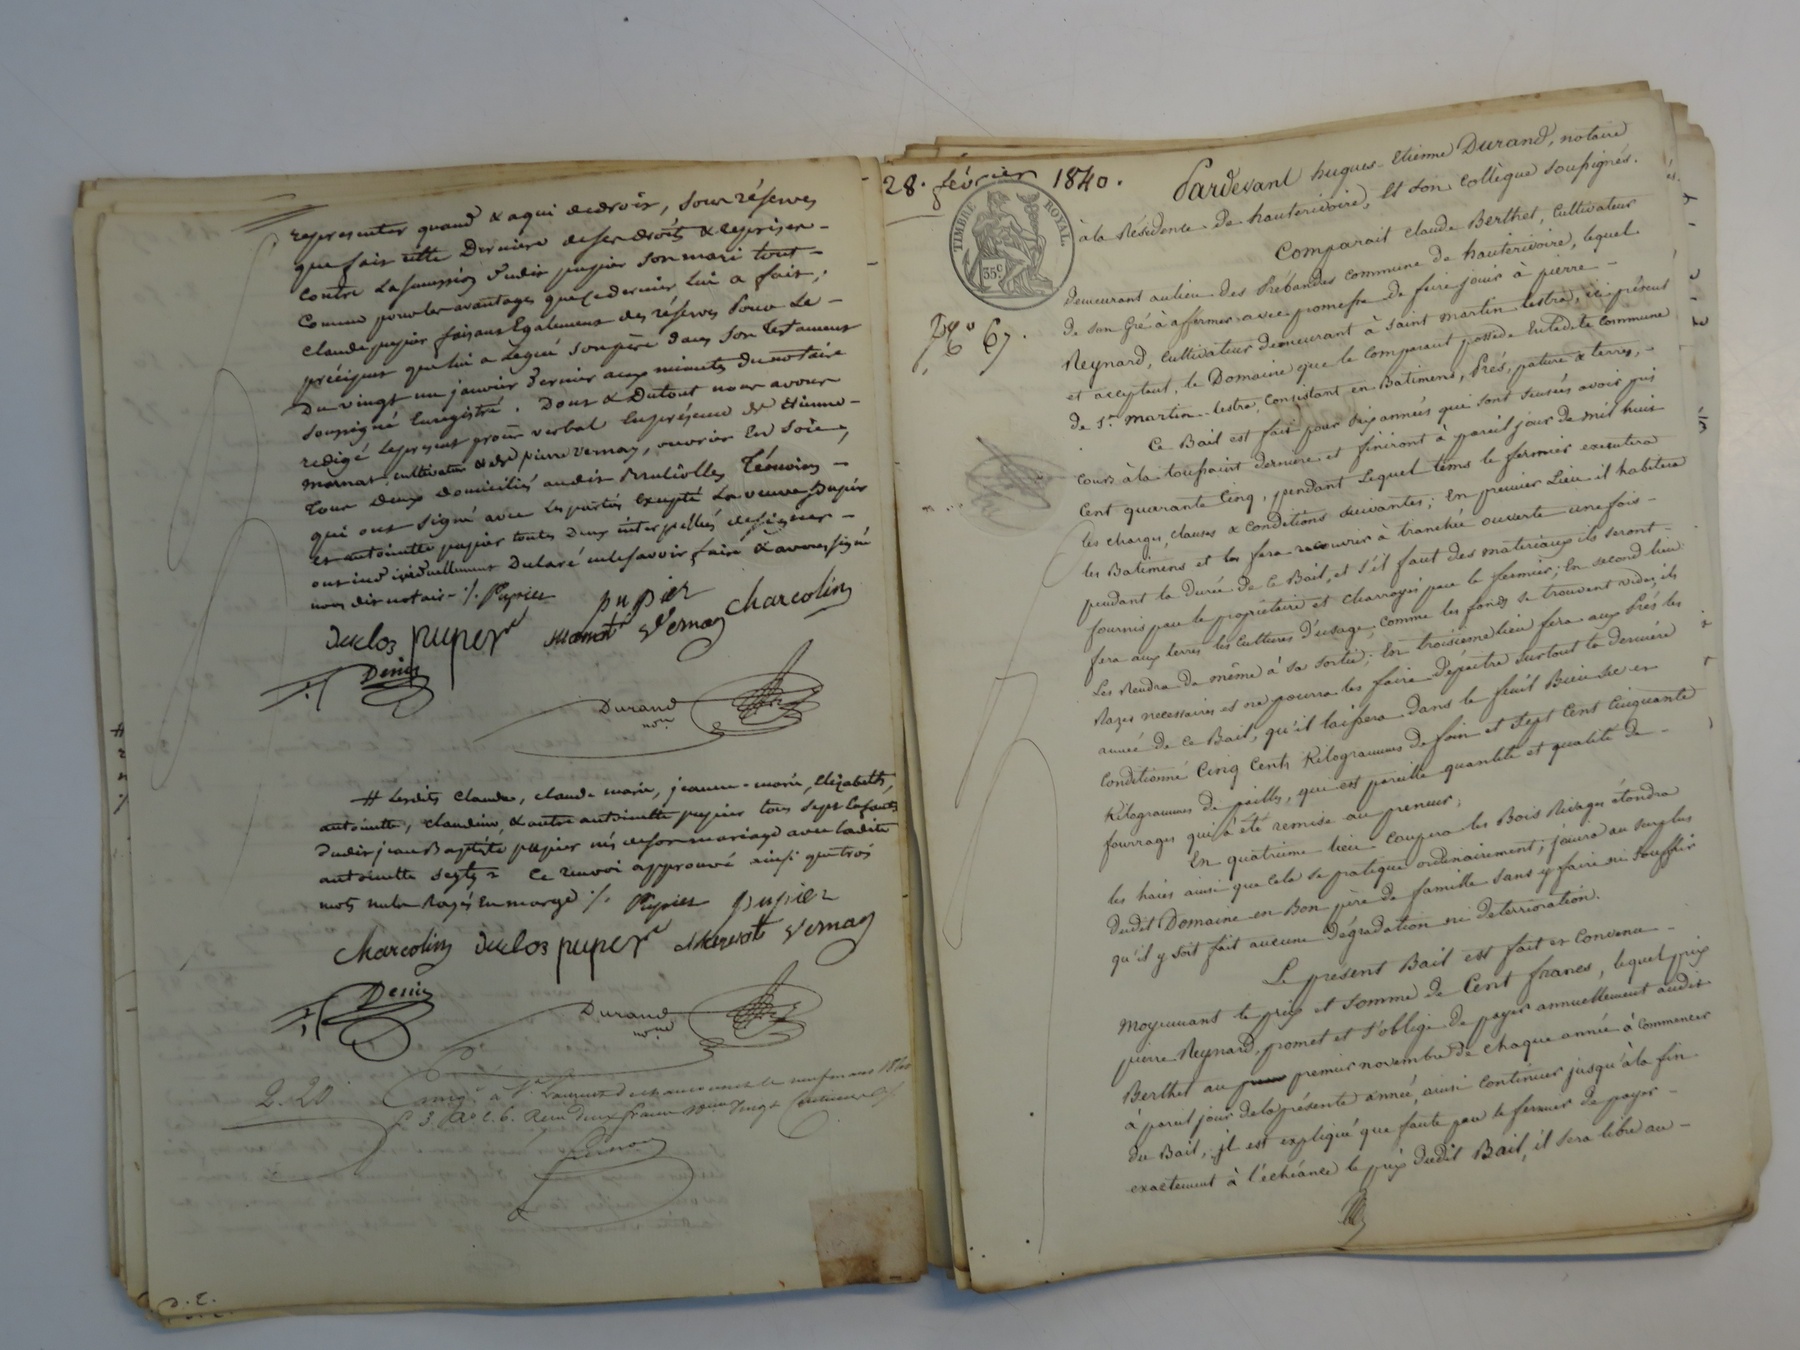 représenter quand & a qui de droit, sous réserves
que fait cette dernière de ses droits & reprises
contre la succession dudit pupier son mari tout
comme pour les avantages que ce dernier lui a fait;
Claude pupier faisant Egalement des réserves pour le
préciput que lui a Légué son père dans son Testament
du vingt un janvier dernier aux minutes du notaire
soussigné Enregistré. Dont & Dutout nous avons
rédigé le présent procès verbal En présence de Etienne
mornat, cultivateur & de pierre vernay, ouvrier En Soie,
tous deux domiciliés audit Témoins
qui ont signé avec les parties Excepté La veuve Pupier
et antoinette pupier toutes deux interpellées de signer
ont individuellement Déclaré ne le savoir faire & avons signé
nous dit notaire ./. Pupier pupier Charcolin
Duclos pupier vernay
Denis
Durand
nore
# Lesdits Claude, claude marie, jeanne-marie, Elizabeth,
antoinette, Claudine, & autre antoinette pupier tous sept Enfants
dudit jean Baptiste pupier nés de son mariage avec ladite
antoinette Ce renvoi approuvé ainsi que trois
mots nuls Rayés En marge ./. Pupier pupier
Charcolin Duclos pupier vernay
Denis
Durand
nore
2.20
Enregé à St Laurent de chamousset le neuf mars 1840
fo 3. Ro c. 6. Reçu deux francs vingt Centimes
D. E.
28. février 1840.
TIMBRE ROYAL
35c
No 67.
Pardevant hugues-Etienne Durand, notaire
à la Résidence de hauterivoire, Et son Collègue soussignés.
Comparait Claude Berthet, Cultivateur
demeurant au lieu des Prébandes commune de hauterivoire, lequel
de son gré à affermer avec promesse de faire jouir à pierre
Reynard, Cultivateur demeurant à Saint Martin Lestra, ici présent
et acceptant, le Domaine que le Comparant possede En ladite Commune
de St Martin-Lestra, Consistant en Batiments, Prés, pature & terres,
Ce Bail est fait pour six années qui sont sensées avoir pris
cours à la toussaint dernière et finiront à pareil jour de mil huit
Cent quarante Cinq, pendant lequel tems le fermier executera
les charges, clauses & conditions suivantes; En premier Lieu il habitera
les Batiments et les fera recouvrir à tranchée ouverte une fois
pendant la durée de ce Bail, et s'il faut des materiaux ils seront
fournis par le propriétaire et charroyés par le fermier; En second lieu
fera aux terres les Cultures d'usage, comme les fonds se trouvent vides, ils
Les Rendra de même à sa sortie; En troisieme lieu fera aux Prés les
Razes necessaires et ne pourra les faire dépaitre surtout la dernière
année de Ce Bail, qu'il laissera dans le fenil Bien sec et
Conditionné Cinq Cents Kilogrammes de foin et Sept Cent Cinquante
Kilogrammes de pailles, qui est pareille quantité et qualité de
fourrages qui a été remise au preneur;
En quatrième lieu Coupera les Bois Rivages étondra
les haies ainsi que Cela se pratique ordinairement; jouira au surplus
dudit Domaine en Bon père de famille sans y faire ni souffrir
qu'il y soit fait aucune Dégradation ni deterrioration.
Le présent Bail est fait et Convenu
Moyennant le prix et somme de Cent francs, lequel prix
pierre Reynard, promet et s'oblige de payer annuellement audit
Berthet au premier novembre de chaque année à commencer
à pareil jour de la présente année, ainsi Continuer jusqu'à la fin
du Bail, il est expliqué que faute par le fermier de payer
exactement à l'échéance le prix dudit Bail, il sera libre au